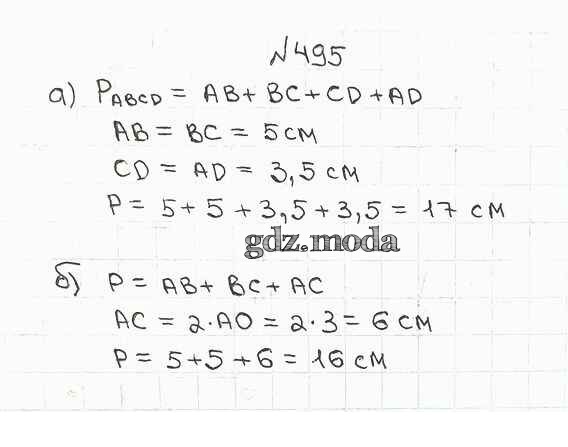 №495
а) P_ABCD = AB + BC + CD + AD
AB = BC = 5 см
CD = AD = 3,5 см
P = 5 + 5 + 3,5 + 3,5 = 17 см
gdz.moda
б) P = AB + BC + AC
AC = 2·AO = 2·3 = 6 см
P = 5 + 5 + 6 = 16 см